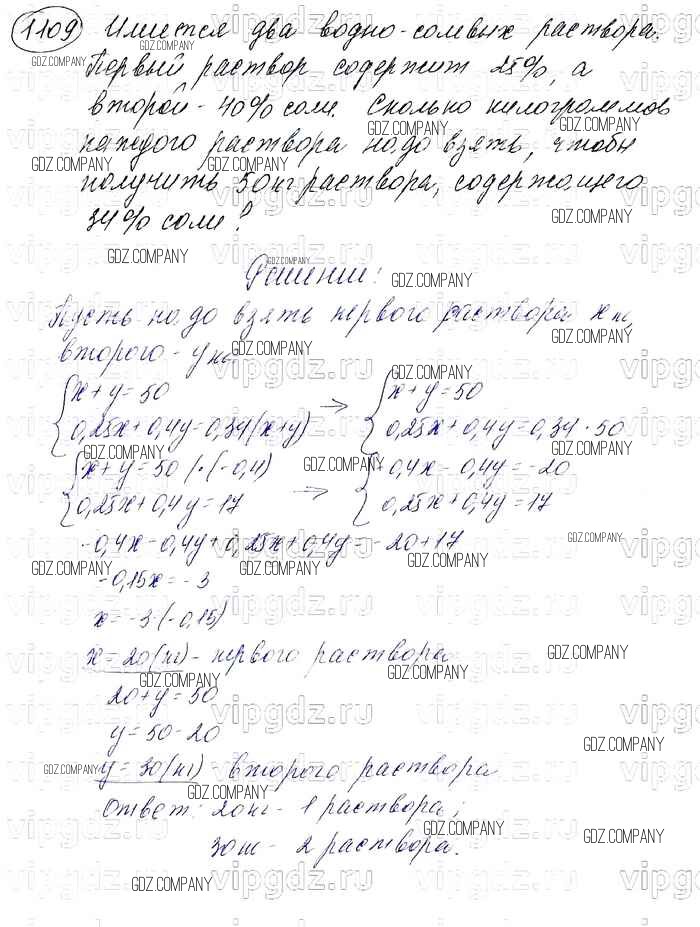 1109 Имеется два водно-солевых раствора.
Первый раствор содержит 25%, а
второй - 40% соли. Сколько килограммов
каждого раствора надо взять, чтобы
получить 50 кг раствора, содержащего
34% соли?
Решение:
Пусть надо взять первого раствора x кг,
второго - y кг
{x + y = 50 → {x + y = 50
0,25x + 0,4y = 0,34(x+y) 0,25x + 0,4y = 0,34 · 50
{x + y = 50 |·(-0,4) → {-0,4x - 0,4y = -20
0,25x + 0,4y = 17 0,25x + 0,4y = 17
-0,4x - 0,4y + 0,25x + 0,4y = -20 + 17
-0,15x = -3
x = -3 : (-0,15)
x = 20 (кг) - первого раствора
20 + y = 50
y = 50 - 20
y = 30 (кг) - второго раствора
Ответ: 20 кг - 1 раствора;
30 кг - 2 раствора.
GDZ.COMPANY
vipgdz.ru